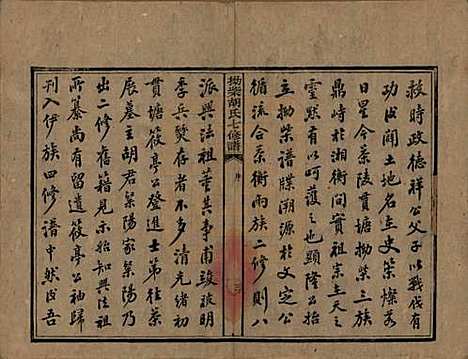 救時政德祥公父子以戰伐有
功成闢土地名主史筞燦若
日星今茶陵貫塘拗柴三族
鼎峙于湘衡間實祖宗主天之
靈默有以呵護之也顯隆公始
立拗柴譜牒溯源於文定公
循流合茶衡兩族二修則八
拗柴胡氏七修譜
序
派興法祖董其事甫竣玻明
季兵燹存者不多清光緒初
貫塘筱亭公登進士第往茶
展墓主胡君紫陽家紫陽乃
出二修舊籍見示知興法祖
所纂尚有留遺筱亭公袖歸
刊入伊族四修譜中然後吾